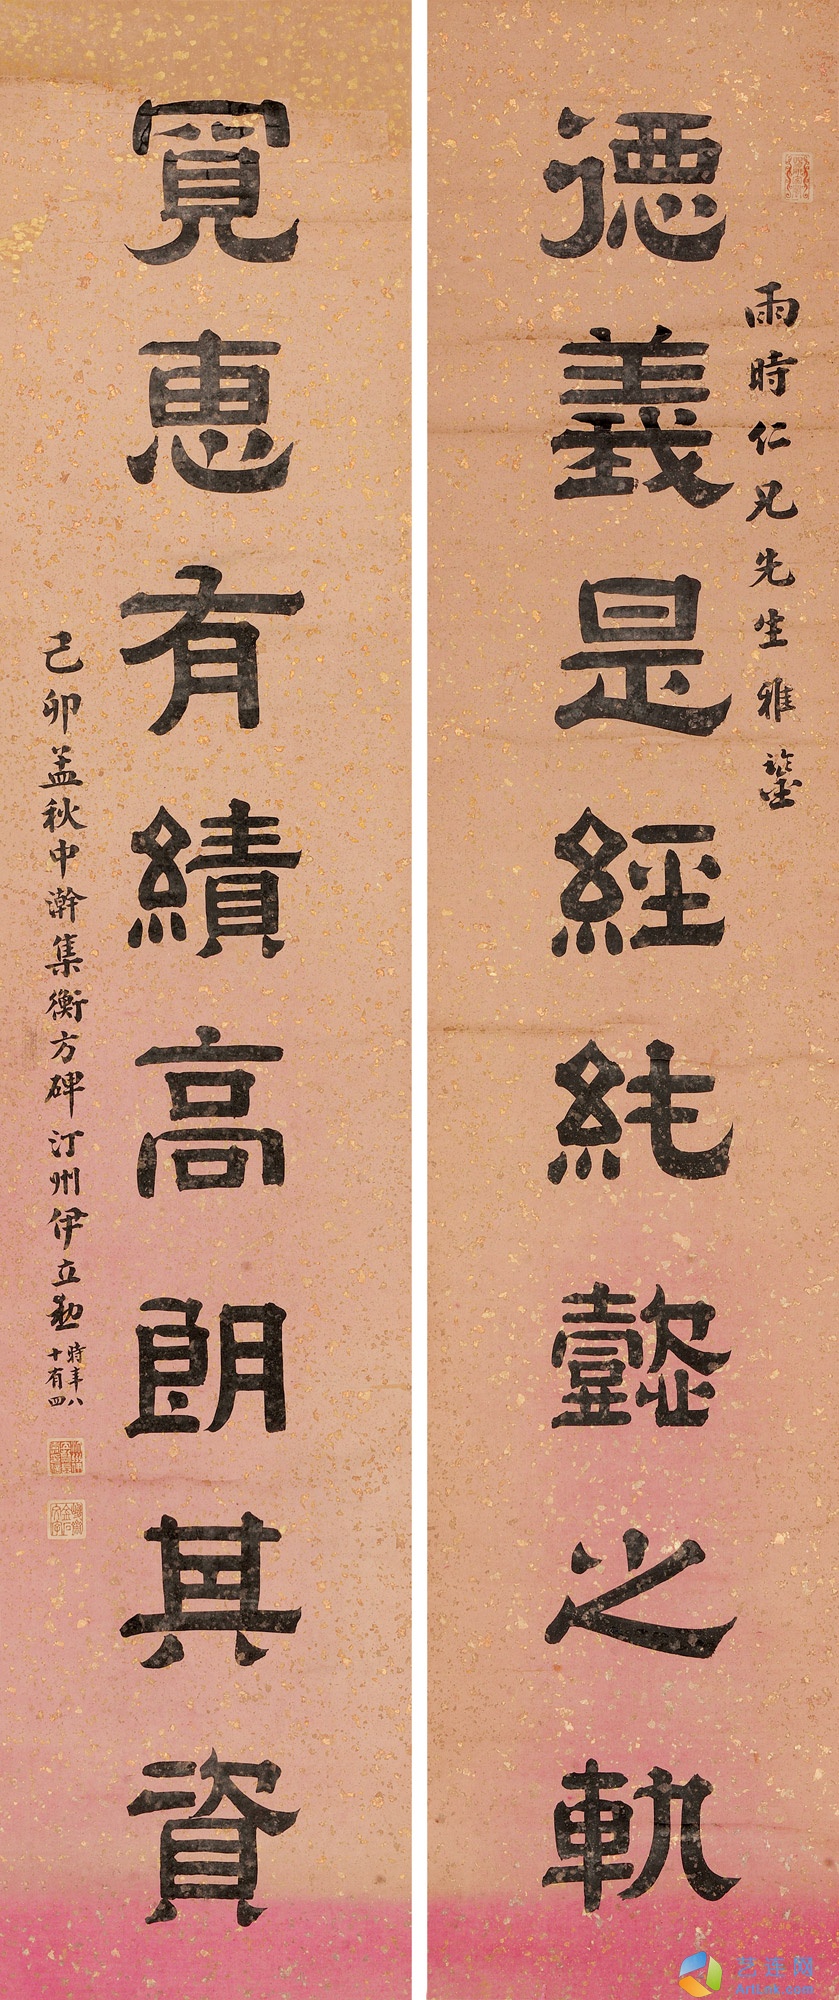 雨時仁兄先生雅鑒
德義是經純懿之軌
寬惠有績高朗其資
己卯孟秋中澣集衡方碑汀州伊立勳時年八十有四
艺连网
ArtLink.com